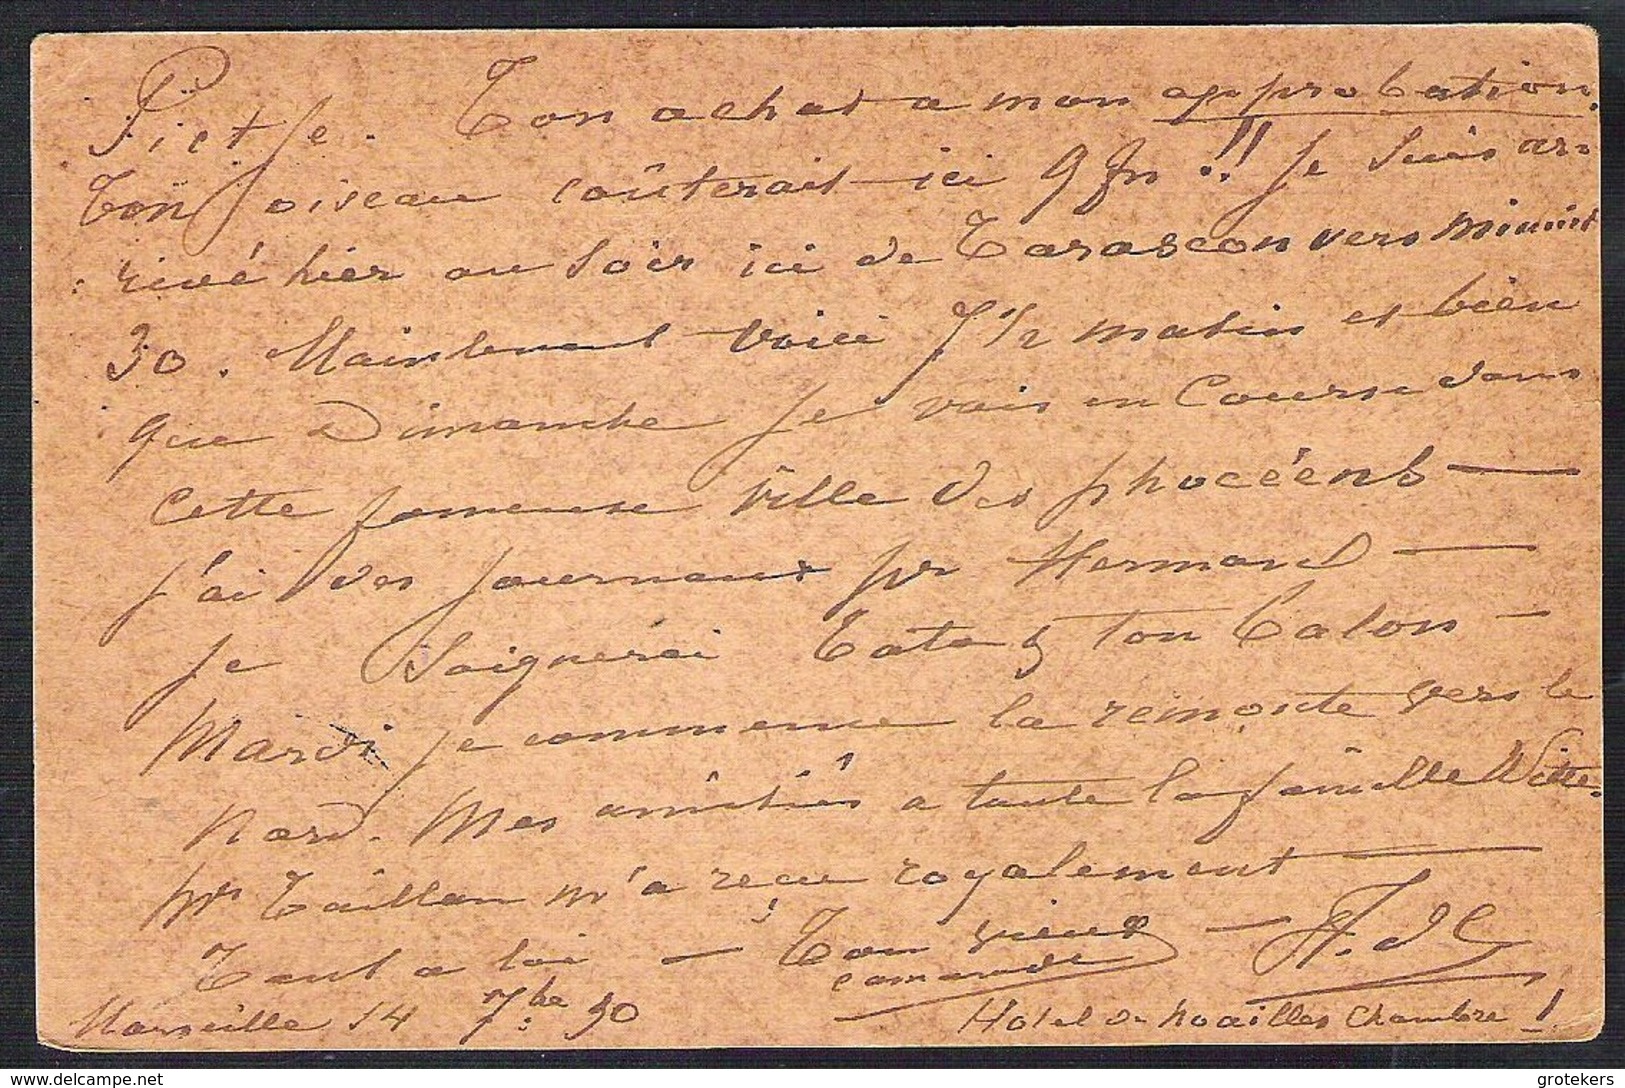 Pietje. Ton achat a mon approbation.
Ton oiseau coûterait ici 9 fr.!! Je suis ar-
rivé hier au soir ici de Tarascon vers minuit
30. Maintenant voici 7 1/2 matin et bien
que Dimanche je vais en course dans
cette fameuse ville des phocéens —
j'ai des journaux pr Hermand —
je soignerai ton —
Mardi je commence la remonte vers le
Nord. Mes amitiés a toute la famille Witte.
Mr Taillan m'a reçu royalement —
Tout a toi — Ton vieux —
camarade
Marseille 14 7bre 90
Hotel de Noailles Chambre 1
delcampe.net
grotekers